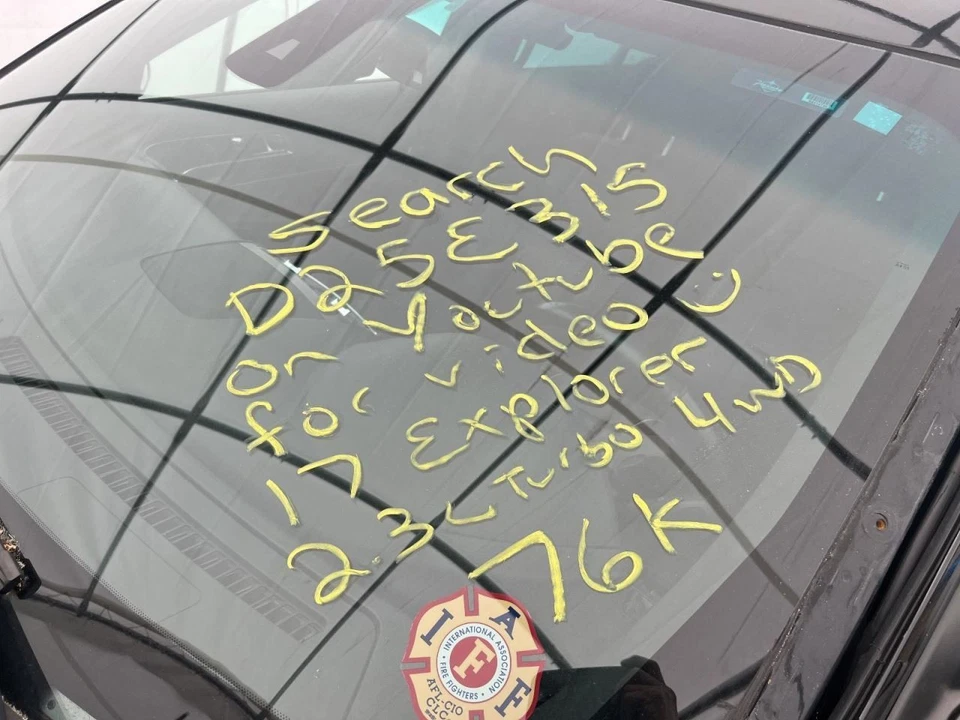 Search
D25E315
on Youtube
for video
17 Explorer
2.3L Turbo 4WD
76K
I A F F
INTERNATIONAL ASSOCIATION
FIRE FIGHTERS
F
AFL-CIO
CLC